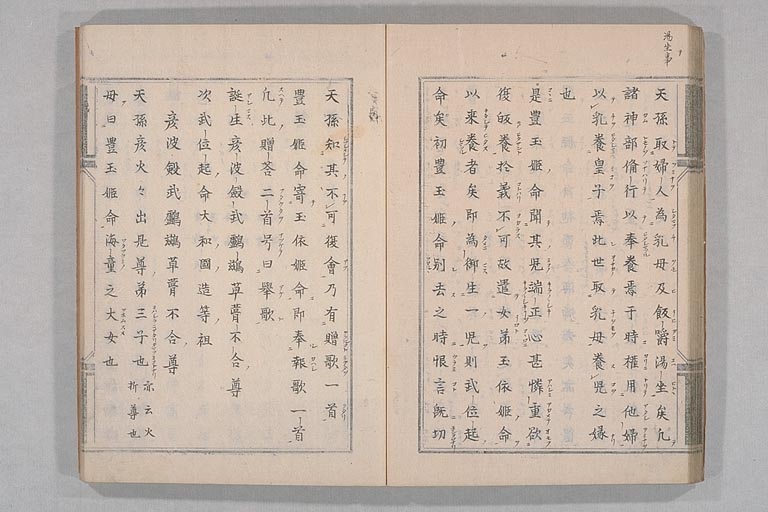 湯坐事
天孫取婦人為乳母及飯嚼湯坐矣凡
諸神部備行以奉養焉于時權用他婦
以乳養皇子焉此世取乳母養児之縁
也
是豊玉姫命聞其児端正心甚憐重欲
復皈養於義不可故遣女弟玉依姫命
以来養者矣即為御生一児則武位起
命矣初豊玉姫命別去之時恨言既切
天孫知其不可復會乃有贈歌一首
豊玉姫命寄玉依姫命即奉報歌一首
凡此贈荅二首号曰擧歌
誕生彦波瀲武鸕鷀草葺不合尊
次武位起命大和國造等祖
彦波瀲武鸕鷀草葺不合尊
天孫彦火々出見尊弟三子也亦云火折尊也
母曰豊玉姫命海童之大女也